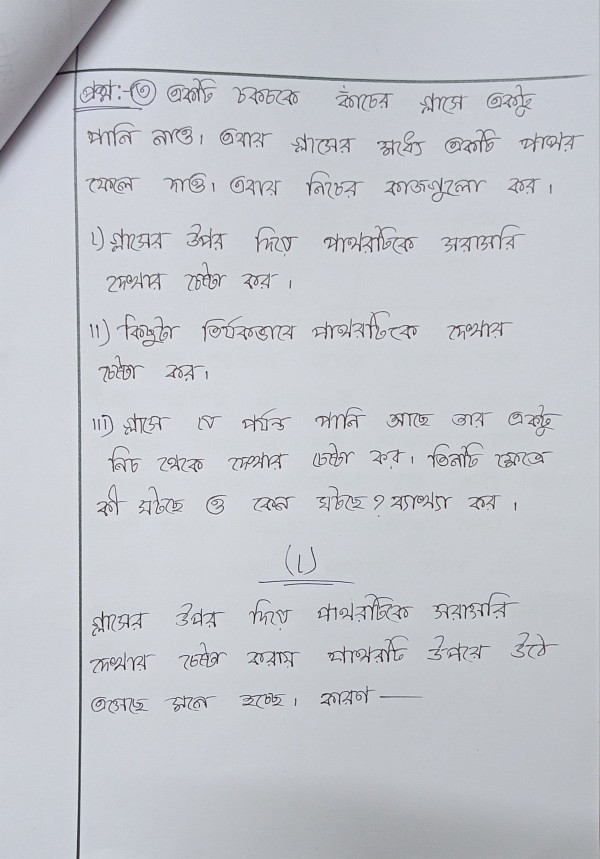 প্রশ্ন:-৩ একটি চকচকে কাঁচের গ্লাসে একটু
পানি নাও। এবার গ্লাসের মধ্যে একটি পাথর
ফেলে দাও। এবার নিচের কাজগুলো কর।
i) গ্লাসের উপর দিয়ে পাথরটিকে সরাসরি
দেখার চেষ্টা কর।
ii) কিছুটা তির্যকভাবে পাথরটিকে দেখার
চেষ্টা কর।
iii) গ্লাসে যে পর্যন্ত পানি আছে তার একটু
নিচ থেকে দেখার চেষ্টা কর। তিনটি ক্ষেত্রে
কী ঘটেছে ও কেন ঘটেছে? ব্যাখ্যা কর।
(i)
গ্লাসের উপর দিয়ে পাথরটিকে সরাসরি
দেখার চেষ্টা করায় পাথরটি উপরে উঠে
এসেছে মনে হচ্ছে। কারণ —